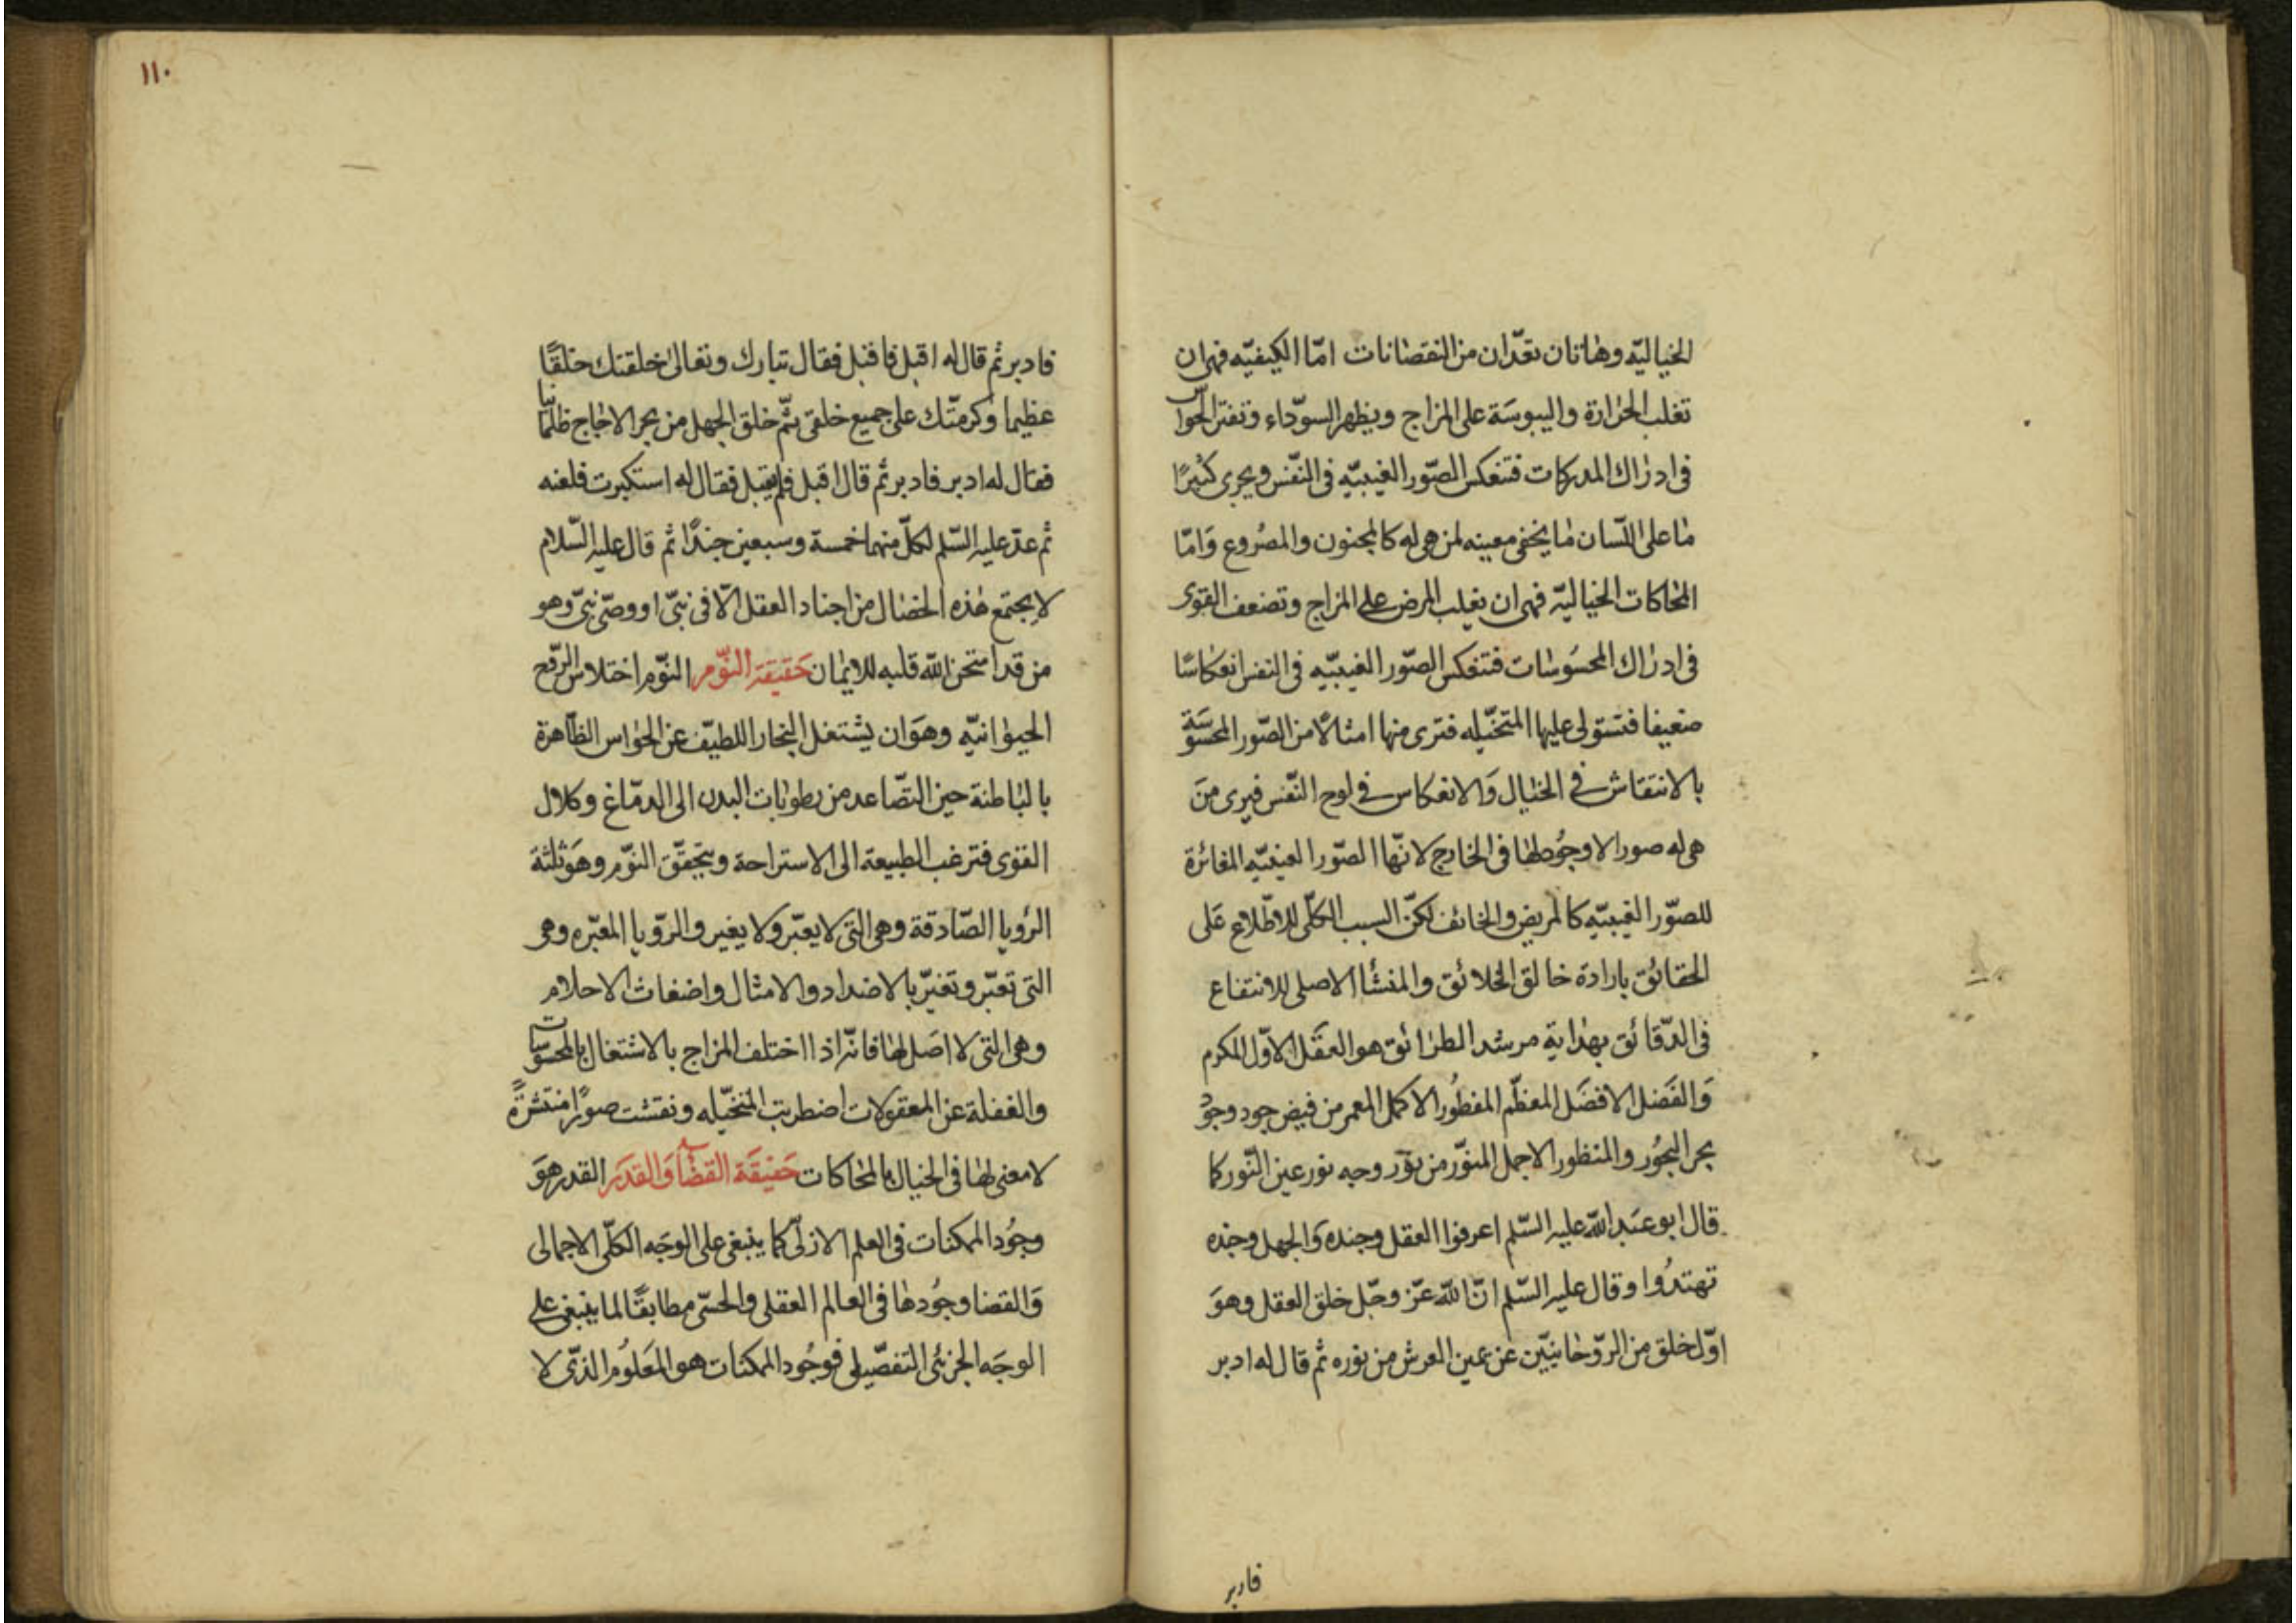 الخياليّه وهاتان تعدّان من النقصانات امّا الكيفيّه فهى ان
تغلب الحرارة واليبوسَة على المزاج ويظهر السوّداء وتفتر الحواسّ
فى ادراك المدركات فتنعكس الصّور الغيبيّه فى النّفس ويجرى كثيرًا
ما على اللّسان ما يخفى معينه لمن هى له كالمجنون والمصرُوع وَامّا
المحاكات الخياليّه فهى ان يغلب المرض على المزاج وتضعف القوى
فى ادراك المحسَوسات فتنعكس الصّور الغيبيّه فى النفس انعكاسًا
ضعيفا فتستولى عليها المتخيّله فترى منها امثالًا من الصّور المحسوسَة
بالانتقاش فى الخيال وَالانعكاس فى لوح النّفس فيرى منَ
هى له صورا لا وجُود لها فى الخارج لانّها الصّور العينيّه المغائرة
للصوّر الغيبيّه كالمريض والخائف لكنّ السبب الكلّى للاطّلاع عَلى
الحقائق بارادة خالق الخلائق والمنشأ الاصلى للانتفاع
فى الدّقائق بهداية مرشد الطرائق هو العقَل الاوّل المكرم
وَالفَضل الافضَل المعظّم المفطُور الاكمل المعمر من فيض جود وجوُد
بحر البحُور والمنظور الاجمل المنوّر من نوّر وجه نور عين النّور كما
قال ابو عبَد اللّه عليه السّلم اعرفوا العقل وجنده وَالجهل وجنده
تهتدُوا وقال عليه السّلم انّ اللّه عزّ وجّل خلق العقل وهوَ
اوّل خلق من الرّوحانيّين عن يمين العرش من نوره ثم قال له ادبر
فادبر
١١٠
فادبر ثم قال له اقبل فاقبل فقال تبارك وتعالى خلقتك خلقًا
عظيما وكرمتّك على جميع خلقى ثمّ خلق الجهل من بحر الاجاج ظلمانيّا
فقال له ادبر فادبر ثم قال اقبل فلم يقبل فقال له استكبرت فلعنه
ثم عدّ عليه السّلم لكلّ منهما خمسة وسبعين جندًا ثم قال عليه السّلام
لا يجتمع هذه الخصال من اجناد العقل الّا فى نبىّ او وصّى نبىّ وهو
من قد امتحن اللّه قلبه للايمان حَقيقة النّوم النوّم اختلاس الرّوح
الحيوانيّه وهوَ ان يشتغل البخار اللطيّف عن الحواس الظّاهرة
بالباطنة حين التصّاعد من رطوبات البدن الى الدمّاغ وكلال
القوى فترغب الطبيعة الى الاستراحة ويتحقّق النوّم وهوَ ثلثة
الرؤيا الصّادقة وهى التى لا يعبّر ولا يغير والرّؤيا المعبّره وهى
التى تعبّر وتغيّر بالاضداد والامثال واضغاث الاحلام
وهى التى لا اصَل لها فانّه اذا اختلف المزاج بالاشتغال بالمحسوسات
والغفلة عن المعقولات اضطربت المتخيّله ونقشت صورًا منتشرةً
لا معنى لها فى الخيال بالمحاكات حَقيقَة القضاء وَالقدَر القدر هوَ
وجُود الممكنات فى العلم الازلىّ كما ينبغى على الوجَه الكلّى الاجمالى
وَالقضا وجُودها فى العالم العقلى والحسّى مطابقًا لما ينبغى على
الوجَه الجزئى التفصّيلى فوجُود الممكنات هو المعَلوُم الذّى لا